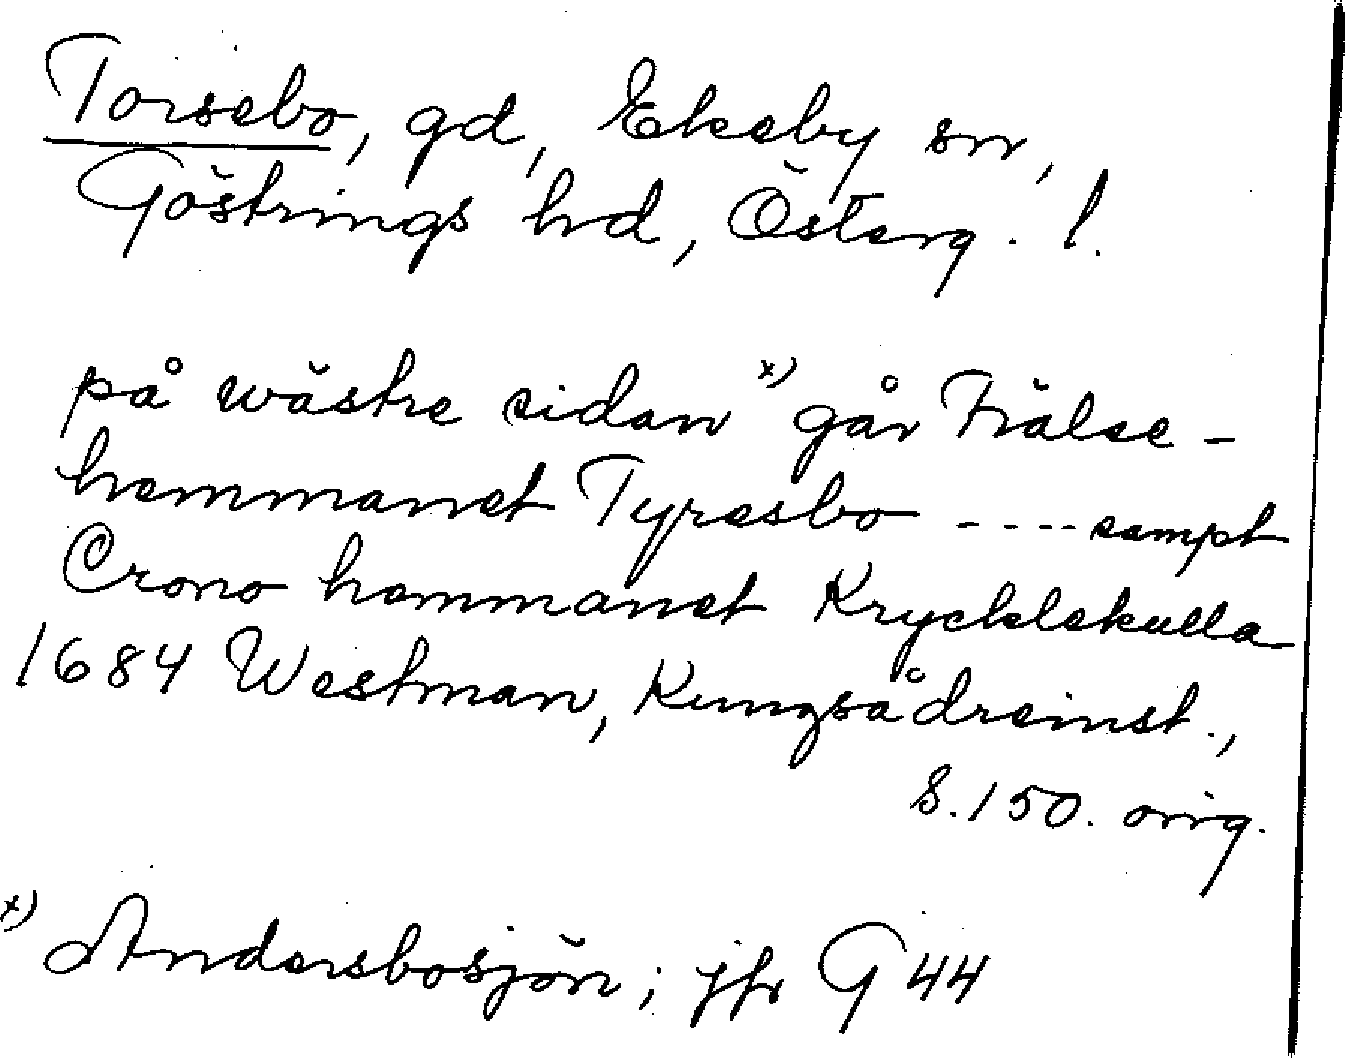 Torsebo, gd, Ekeby sn,
Göstrings hd, Österg. l.
på wästre sidan x) går Frälse-
hemmanet Tyresbo ---- sampt
Crono hemmanet Krycklekulla
1684 Westman, Kungsådreinst.,
S. 150. orig.
x) Andersbosjön; jfr G 44